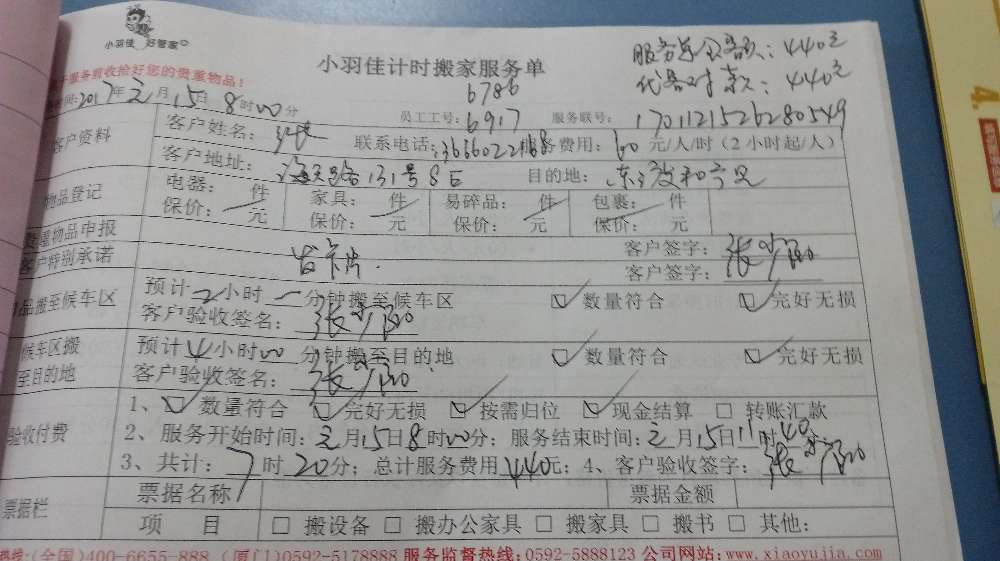 小羽佳 好管家
小羽佳计时搬家服务单
服务总公家款：440元
代备付款：440元
服务前收拾好您的贵重物品！
6786
时间:2017年元月15日8时00分 员工工号:6917 服务联号: 1701121526280549
客户资料 客户姓名: 联系电话:13666022168 服务费用: 60元/人/时（2小时起/人）
客户地址: 131号8E 目的地:
物品登记 电器: 件 家具: 件 易碎品: 件 包裹: 件
保价: 元 保价: 元 保价: 元 保价: 元
物品申报 客户签字:
客户特别承诺 客户签字:
品搬至候车区 预计2小时一分钟搬至候车区 数量符合 完好无损
客户验收签名:
候车区搬 预计4小时00分钟搬至目的地 数量符合 完好无损
至目的地 客户验收签名:
验收付费 1、数量符合 完好无损 按需归位 现金结算 转账汇款
2、服务开始时间:元月15日8时00分；服务结束时间:元月15日11时40
3、共计:7时20分；总计服务费用440元；4、客户验收签字:
票据栏 票据名称 票据金额
项 目 搬设备 搬办公家具 搬家具 搬书 其他:
热线:(全国)400-6655-888 (厦门)0592-5178888 服务监督热线:0592-5888123 公司网站:www.xiaoyujia.com